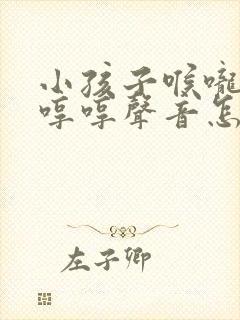 小孩子喉嚨
哼哼聲音怎
左子卿